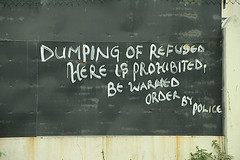 DUMPING OF REFUSED
HERE IS PROHIBITED.
BE WARNED
ORDER BY POLICE